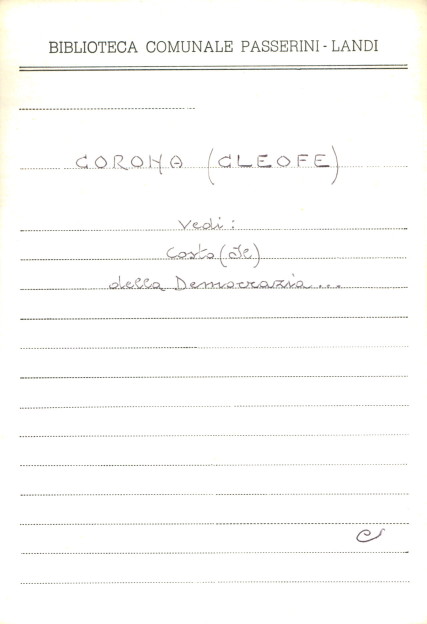 BIBLIOTECA COMUNALE PASSERINI - LANDI
CORONA (CLEOFE)
Vedi:
Costo (Il)
della Democrazia...